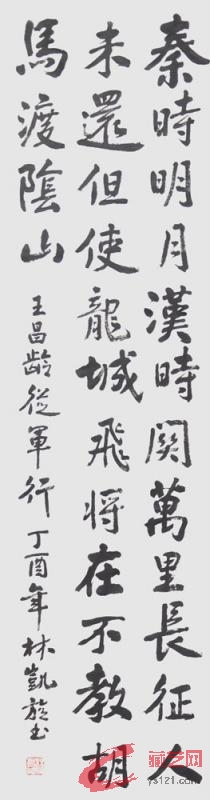 秦時明月漢時關萬里長征人
未還但使龍城飛将在不教胡
馬渡陰山
王昌齡從軍行丁酉年林凱书
ys121.com